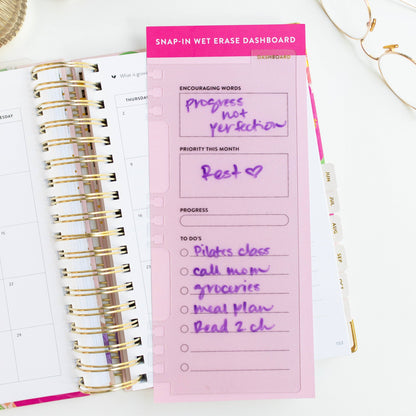 SNAP-IN WET ERASE DASHBOARD
DASHBOARD
ENCOURAGING WORDS
progress
not
perfection
PRIORITY THIS MONTH
Rest ♡
PROGRESS
TO DO'S
Pilates class
call mom
groceries
meal plan
Read 2 ch
THURSDAY
2
JUN
JUL
AUG
SEP